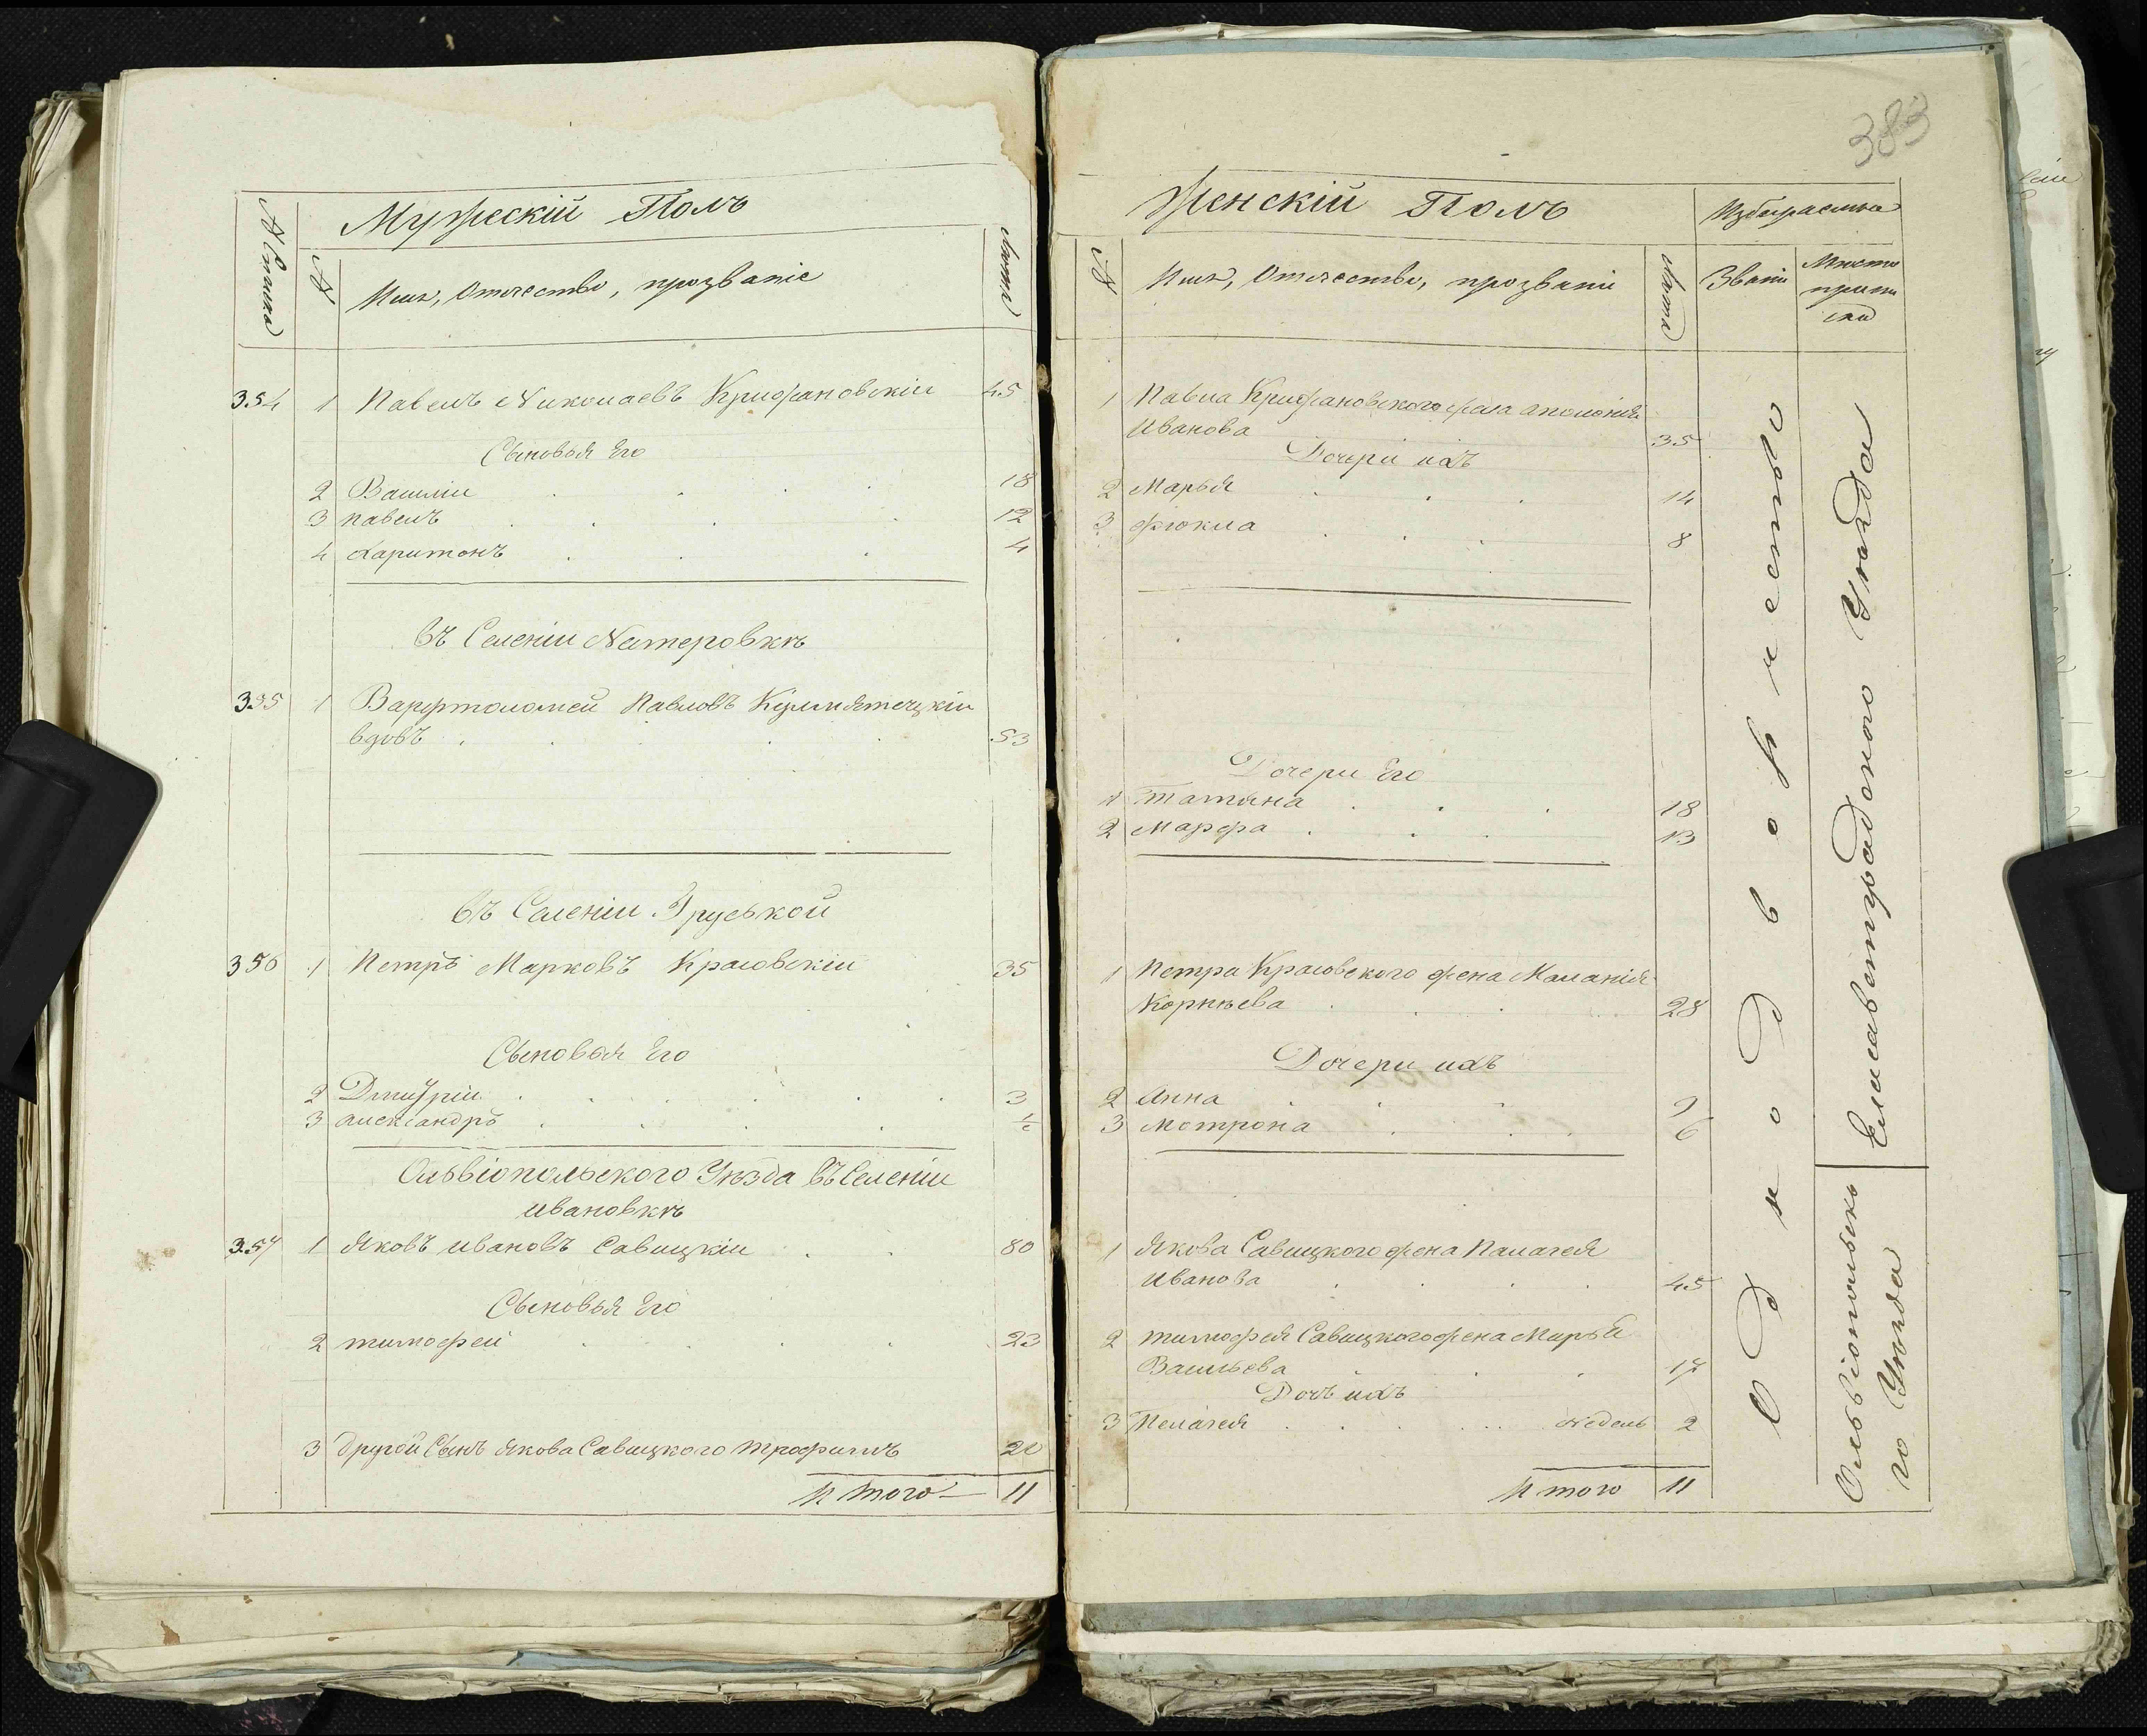 Мужескій Полъ
№ Имя, Отчество, прозваніе Лѣта
354 1 Павелъ Николаевъ Крижановскій 45
Сыновья Его
2 Василій 18
3 павелъ 12
4 Харитонъ 4
въ Селеніи Нестеровкѣ
355 1 Варфтоломей Павловъ
вдовъ 53
въ Селеніи Грузькой
356 1 Петръ Марковъ Красовскій 35
Сыновья Его
2 Дмитрій 3
3 александръ ½
Ольвіопольского Уѣзда въ Селеніи
ивановкѣ
357 1 Яковъ ивановъ Савицкій 80
Сыновья Его
2 тимофей 23
3 другой Сынъ Якова Савицкого трофимъ 20
Итого 11
383
Женскій Полъ
Избираемые
№ Имя, Отчество, прозваніе Лѣта Званіе Мѣсто
припи
ски
1 Павла Крижановского жена аполонія
Иванова 35
Дочери ихъ
2 Марья 14
3 фіокла 8
Дочери Его
1 татяна 18
2 Марфа 13
1 Петра Красовского жена Маланія
Корнѣева 28
Дочери ихъ
2 Анна 9
3 Мотрона 6
1 Якова Савицкого жена Палагея
Иванова 45
2 тимофея Савицкого жена Марья
Васильева 17
Дочь ихъ
3 Пелагея недель 2
Итого 11
Однодворчество
Елисаветградского Уѣзда
Ольвіопольска
го Уѣзда